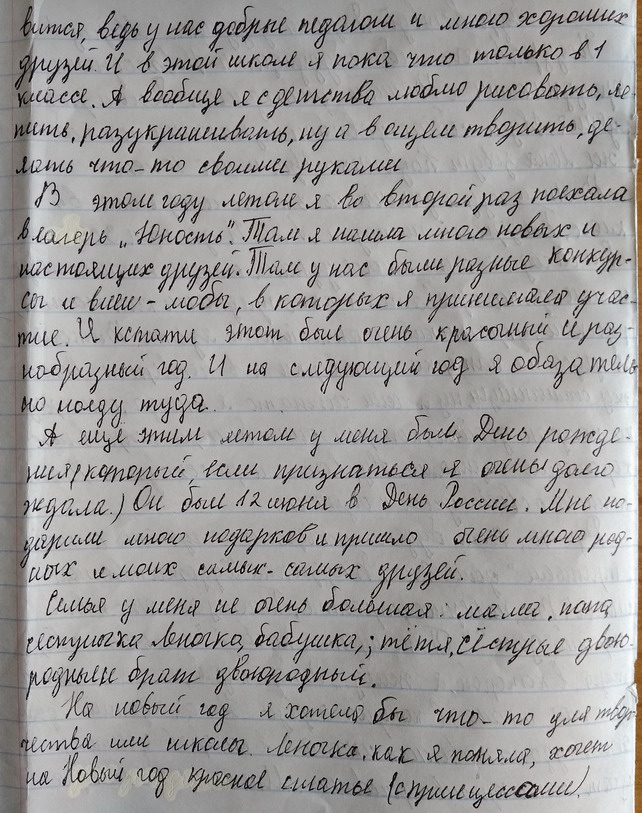 вится, ведь у нас добрые педагоги и много хороших
друзей. И в этой школе я пока что только в 1
классе. А вообще я с детства люблю рисовать, ле-
пить, разукрашивать, ну а в общем творить, де-
лать что-то своими руками
В этом году летом я во второй раз поехала
в лагерь „Юность". Там я нашла много новых и
настоящих друзей. Там у нас были разные конкур-
сы и флеш-мобы, в которых я принимала учас-
тие. И кстати этот был очень красочный и раз-
нобразный год. И на следующий год я обязатель
но поеду туда.
А ещё этим летом у меня был День рожде-
ния (который, если признаться я очень долго
ждала.) Он был 12 июня в День России. Мне по-
дарили много подарков и пришло очень много род-
ных и моих самых-самых друзей.
Семья у меня не очень большая: мама, папа
сестрычка Леночка, бабушка, тётя, сёстры двою-
родные брат двоюродный.
На новый год я хотела бы что-то для твор-
чества или школы. Леночка, как я поняла, хочет
на Новый год красное платье (с принцессами).